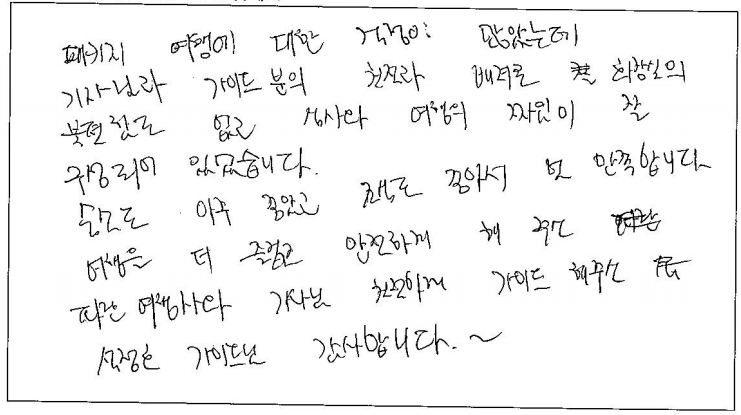 패키지 여행에 대한 걱정이 많았는데
기사님과 가이드분의 친절과 배려로 화장실의
불편함도 없고 식사나 여행의 짜임이 잘
구성되어 있었습니다.
숙소도 아주 좋았고 조식도 좋아서 또 만족합니다
여행을 더 즐겁고 안전하게 해 주신
파란 여행사와 기사님 친절하게 가이드 해주신
석정은 가이드님 감사합니다. ~